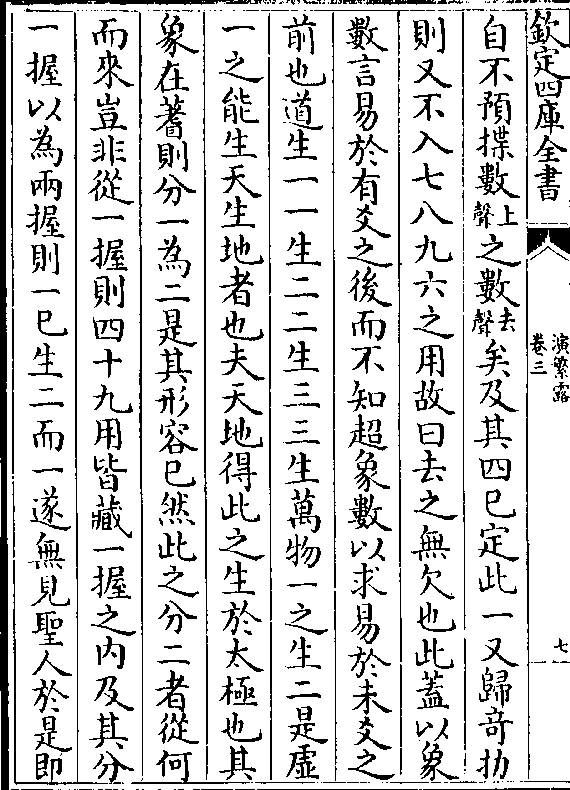 欽定四庫全書
演繁露
卷三
七
自不預揲數上聲之數去聲矣及其四已定此一又歸奇扐
則又不入七八九六之用故曰去之無欠也此蓋以象
數言易於有爻之後而不知超象數以求易於未爻之
前也道生一一生二二生三三生萬物一之生二是虛
一之能生天生地者也夫天地得此之生於太極也其
象在蓍則分一為二是其形容已然此之分二者從何
而來豈非從一握則四十九用皆藏一握之内及其分
一握以為兩握則一已生二而一遂無見聖人於是即